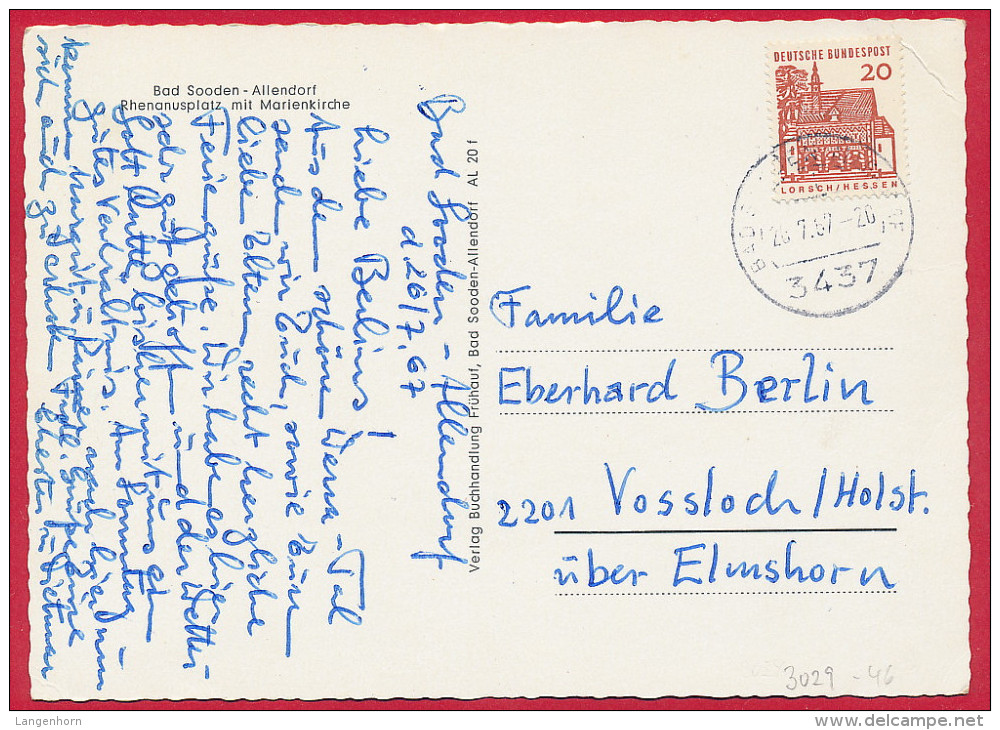 Bad Sooden - Allendorf
Rhenanusplatz mit Marienkirche
Bad Sooden-Allendorf
d. 26/7.67
Liebe Berlins!
Aus dem schönen Werra-Tal
senden wir Euch, sowie Eurn
lieben Eltern recht herzliche
Feriengrüße. Wir haben es hier
sehr gut getroffen und der Wetter-
Gott bisher mit uns ein
gutes Verhältnis. Am Sonntag
kommen
sich auch
Verlag Buchhandlung Frühauf, Bad Sooden-Allendorf AL 20 f
DEUTSCHE BUNDESPOST
20
LORSCH/HESSEN
26.7.67-20
3437
Familie
Eberhard Berlin
2201 Vossloch/Holst.
über Elmshorn
3029 -46
Langenhorn
www.delcampe.net